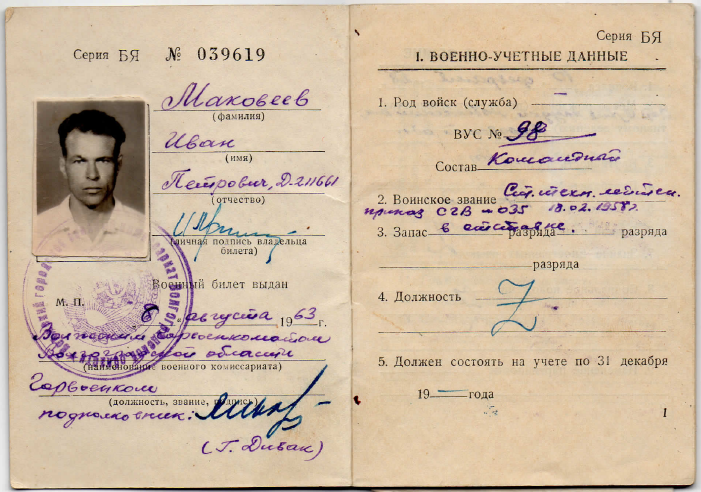 Серия БЯ № 039619
Маковеев
(фамилия)
Иван
(имя)
Петрович, Д-211661
(отчество)
(личная подпись владельца
билета)
Военный билет выдан
М. П.
"8" августа 1963 г.
Волжским горвоенкоматом
Волгоградской области
(наименование военного комиссариата)
Горвоенком
(должность, звание, подпись)
подполковник:
(Г. Дивак)
Серия БЯ
I. ВОЕННО-УЧЕТНЫЕ ДАННЫЕ
1. Род войск (служба) —
ВУС № 98
Состав Командный
2. Воинское звание Ст. техн. лейтен.
приказ СГВ № 035 18.02.1958 г.
3. Запас в отставке. разряда разряда
разряда
4. Должность Z
5. Должен состоять на учете по 31 декабря
19— года
1